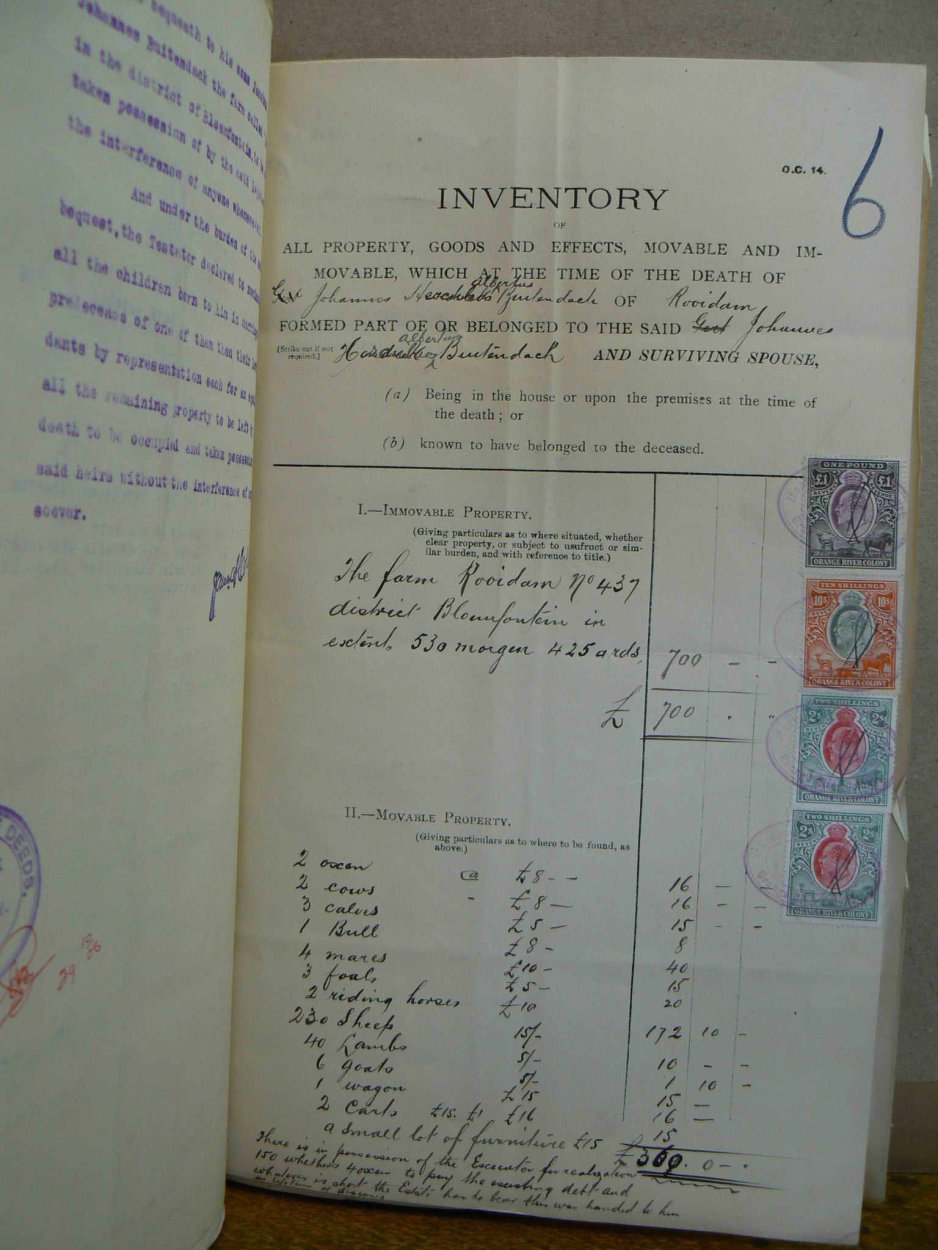 bequeath to his sons
Johannes Buitendach the farm called
in the district of Bloemfontein, to be
taken possession of by the said
the interference of anyone whomsoever.
And under the burden of the
bequest, the Testator declared to
all the children born to him in
predecease of one of them then their
dants by representation each for an
all the remaining property to be left
death to be occupied and taken possession
said heirs without the interference of
soever.
DEEDS.
29
6
O.C. 14.
INVENTORY
OF
ALL PROPERTY, GOODS AND EFFECTS, MOVABLE AND IM-
MOVABLE, WHICH AT THE TIME OF THE DEATH OF
albertus
Johannes Buitendach OF Rooidam
FORMED PART OF OR BELONGED TO THE SAID Gert Johannes
albertus
[Strike out if not required.] Buitendach AND SURVIVING SPOUSE,
(a) Being in the house or upon the premises at the time of
the death; or
(b) known to have belonged to the deceased.
I.—IMMOVABLE PROPERTY.
(Giving particulars as to where situated, whether
clear property, or subject to usufruct or sim-
ilar burden, and with reference to title.)
The farm Rooidam No 437
district Bloemfontein in
extent 530 morgen 425 ards, 700 - -
£ 700 . "
II.—MOVABLE PROPERTY.
(Giving particulars as to where to be found, as
above.)
2 oxen @ £8 - - 16 - -
2 cows " £8 - 16 - -
3 calves £5 - 15 - -
1 Bull £8 - 8
4 mares £10 - 40
3 foals £5 - 15
2 riding horses £10 20
230 Sheep 15/- 172 10 -
40 Lambs 5/- 10 - -
6 goats 5/- 1 10 -
1 wagon £15 15 -
2 Carts £15. £1 £16 16 -
a Small lot of furniture £15 15
£ 360. 0 - .
There is in possession of the Executor for realization
150 whethers 4 oxen to pay the existing debt and
whatever is short the Estate has to bear this was handed to him
in lifetime of
ONE POUND
£1 £1
ORANGE RIVER COLONY
TEN SHILLINGS
10s 10s
ORANGE RIVER COLONY
TWO SHILLINGS
2s 2s
ORANGE RIVER COLONY
TWO SHILLINGS
2s 2s
ORANGE RIVER COLONY